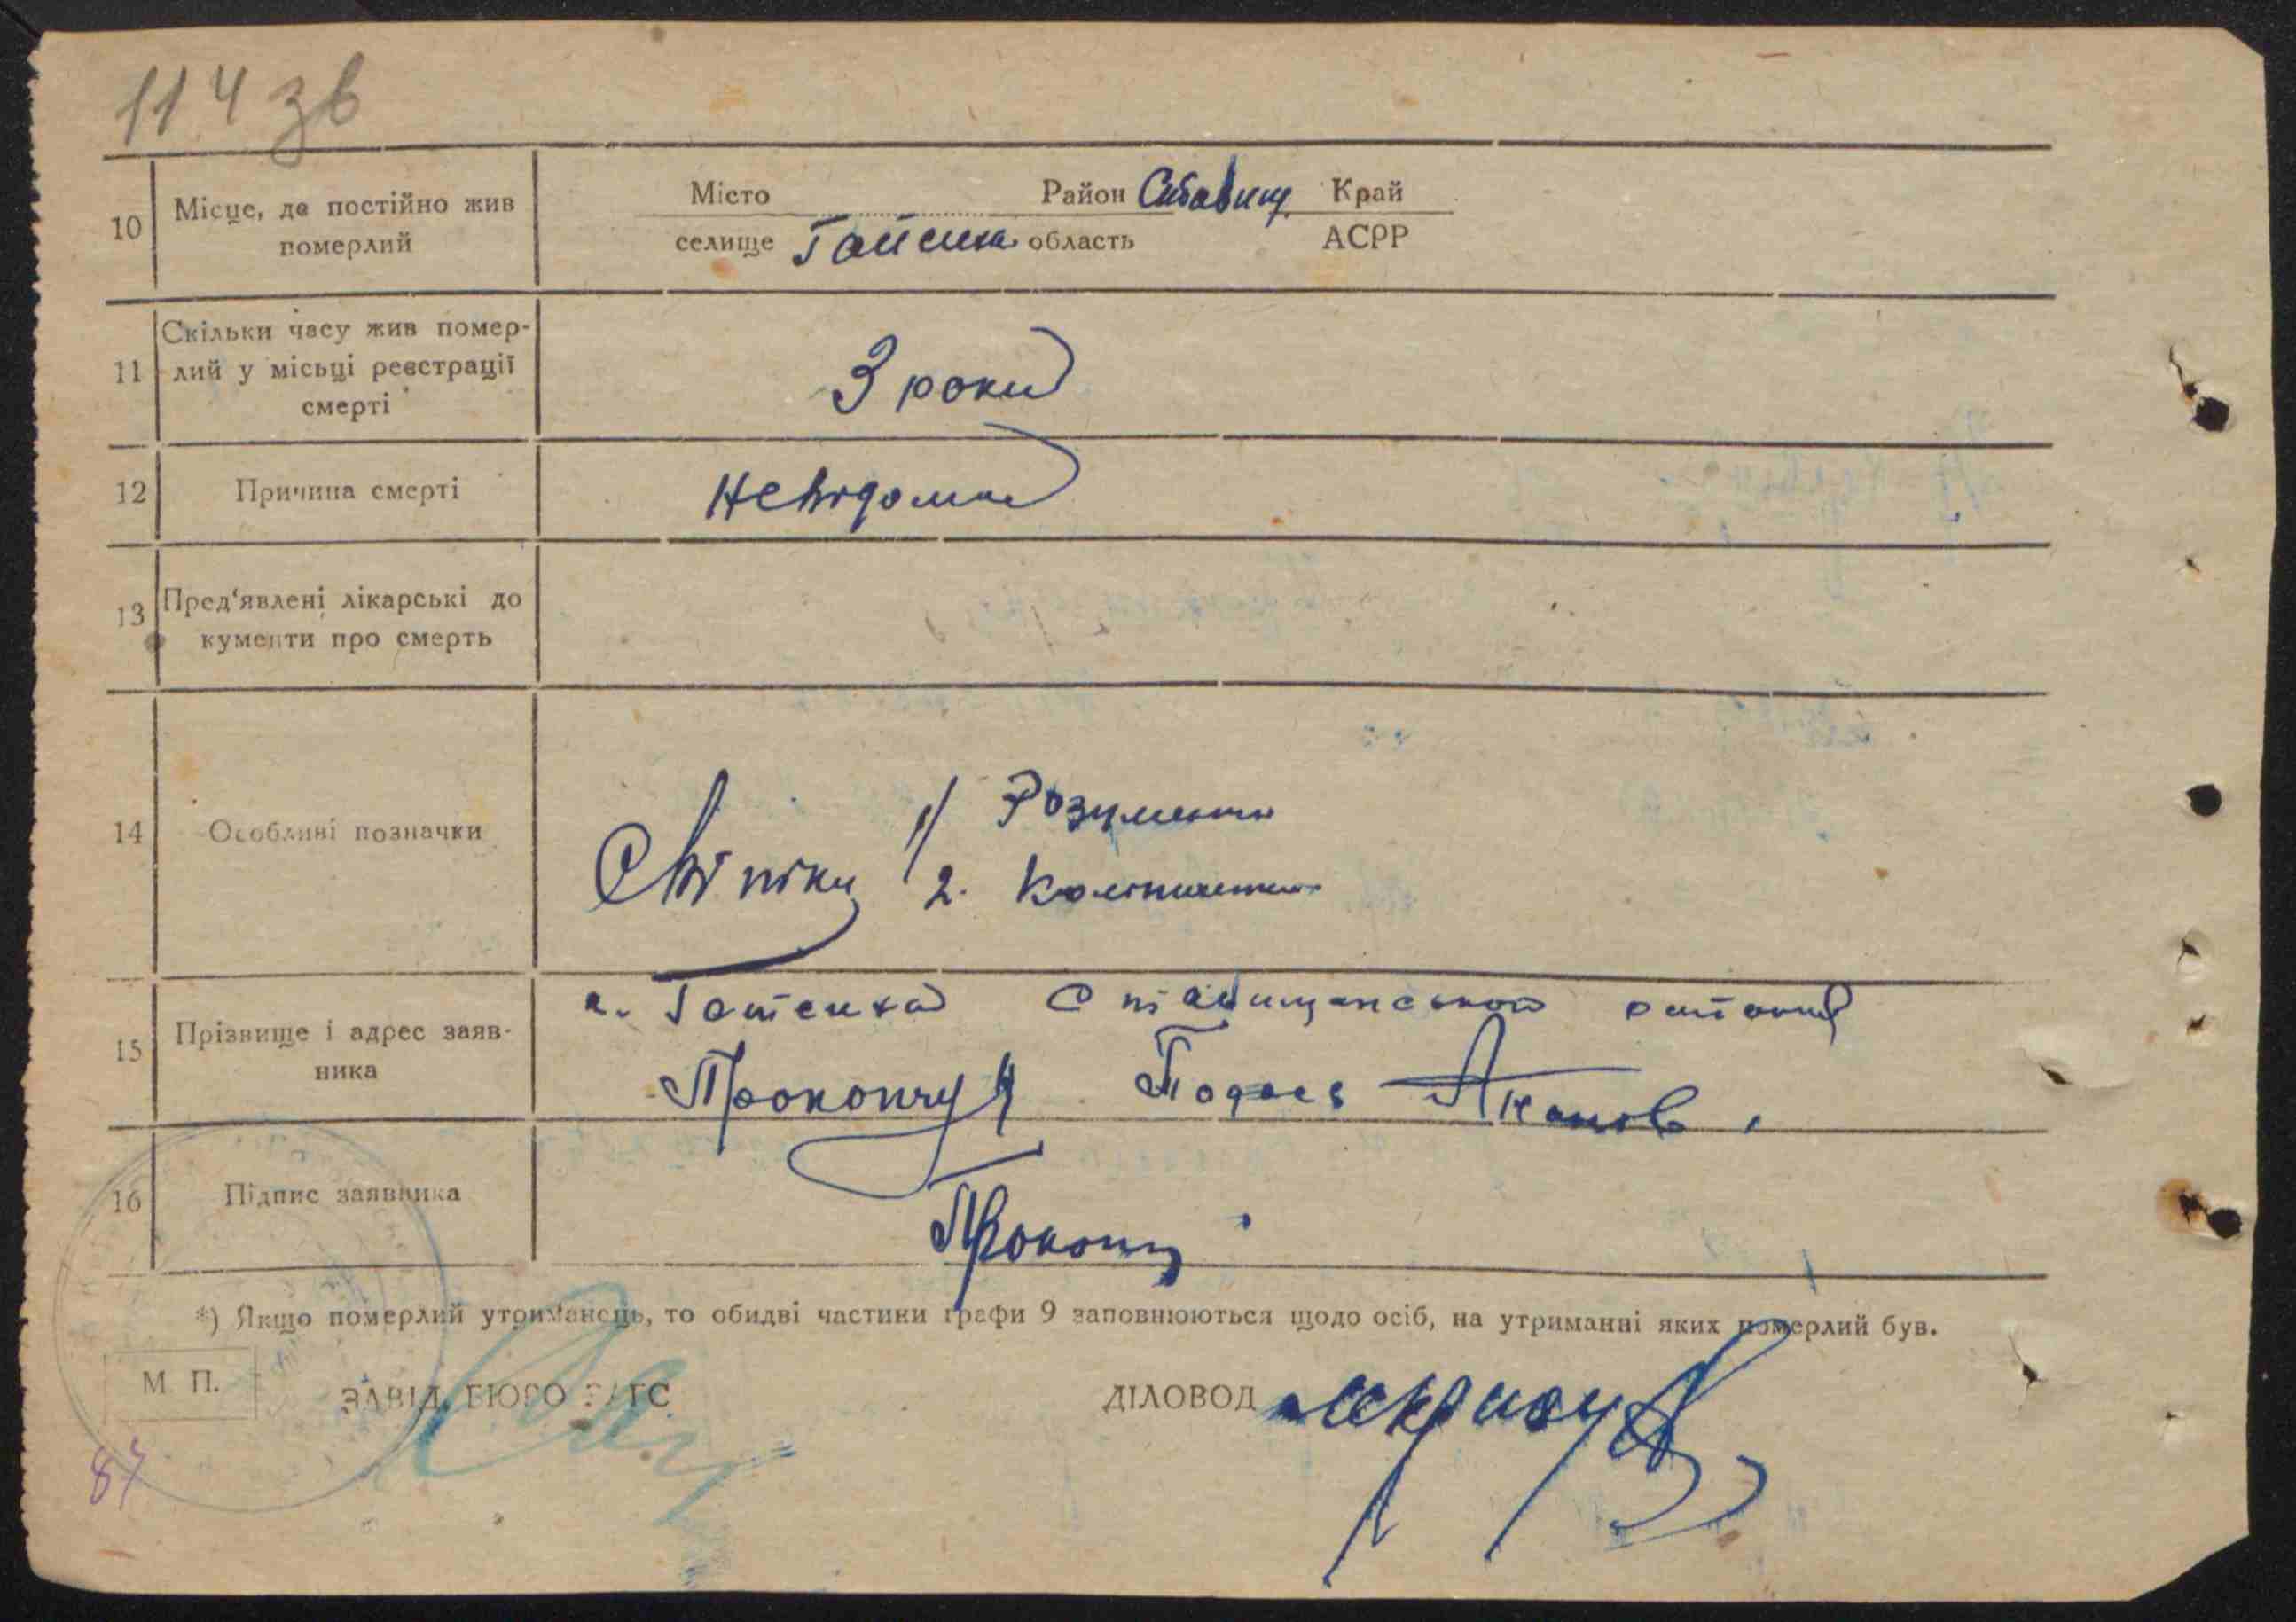 114 зв
10 Місце, де постійно жив померлий
Місто Район Ставищ. Край
селище Гейсиха область АСРР
11 Скільки часу жив помер-
лий у місьці реєстрації
смерті
3 роки
12 Причина смерті
невідома
13 Пред'явлені лікарські до
кументи про смерть
14 Особливі позначки
Свідки 1/ Розумен
2.
15 Прізвище і адрес заяв-
ника
Ставищанського району
Прокопчук
16 Підпис заявника
Прокопч
*) Якщо померлий утриманець, то обидві частини графи 9 заповнюються щодо осіб, на утриманні яких померлий був.
М П.
ЗАВІД. БЮРО ЗАГС
ДІЛОВОД
87